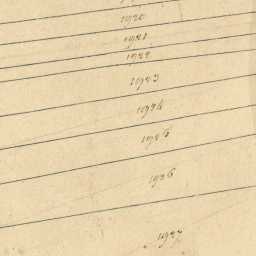 1920
1921
1922
1923
1924
1925
1926
1927